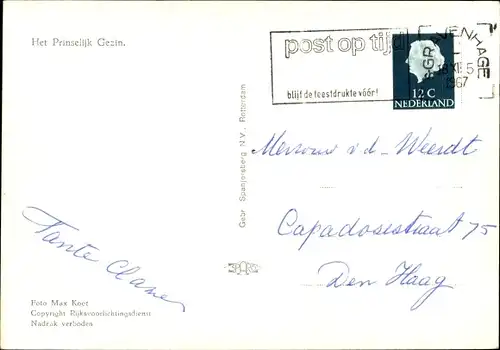 Het Prinselijk Gezin.
post op tijd
blijf de feestdrukte vóór!
'S-GRAVENHAGE
1967
12 C
NEDERLAND
Gebr. Spanjersberg N.V., Rotterdam
Mevrouw v.d. Weerdt
Capadosestraat 75
Den Haag
Tante Clara
Foto Max Koot
Copyright Rijksvoorlichtingsdienst
Nadruk verboden